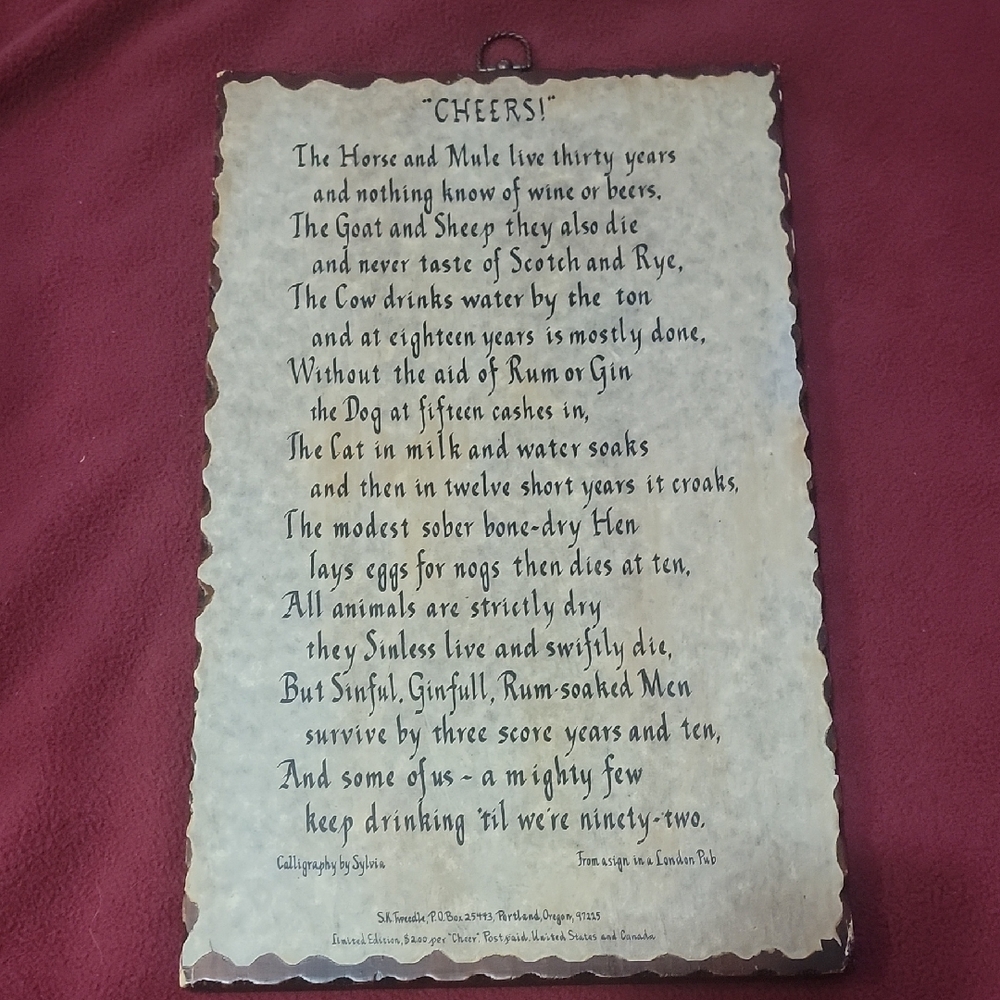 "CHEERS!"
The Horse and Mule live thirty years
and nothing know of wine or beers.
The Goat and Sheep they also die
and never taste of Scotch and Rye,
The Cow drinks water by the ton
and at eighteen years is mostly done,
Without the aid of Rum or Gin
the Dog at fifteen cashes in,
The Cat in milk and water soaks
and then in twelve short years it croaks,
The modest sober bone-dry Hen
lays eggs for nogs then dies at ten,
All animals are strictly dry
they Sinless live and swiftly die,
But Sinful, Ginfull, Rum-soaked Men
survive by three score years and ten,
And some of us - a mighty few
keep drinking 'til we're ninety-two.
Calligraphy by Sylvia From a sign in a London Pub
S.K. Tweedle, P.O. Box 25493, Portland, Oregon, 97225
Limited Edition, $2.00 per "Cheer". Postpaid, United States and Canada